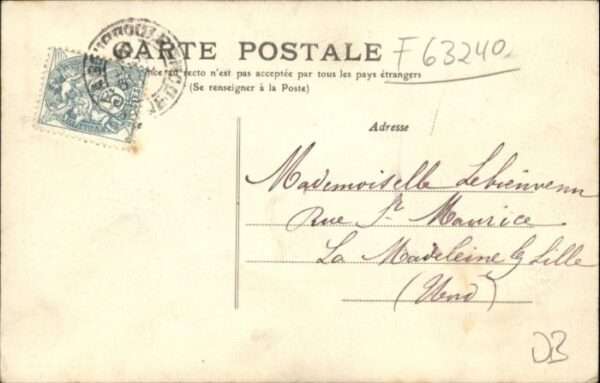 CARTE POSTALE
F 63240
recto n'est pas acceptée par tous les pays étrangers
(Se renseigner à la Poste)
Adresse
Mademoiselle Lebienvenu
Rue St Maurice
La Madeleine lg Lille
(Nord)
DB